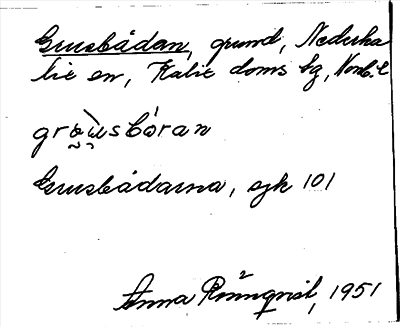 Grusbådan, grund, Nederka
lix en, Kalix doms sg, Norrb. l
gròu̯sbóran
Grusbådarna, sjk 101
Anna Rönnqvist, 1951